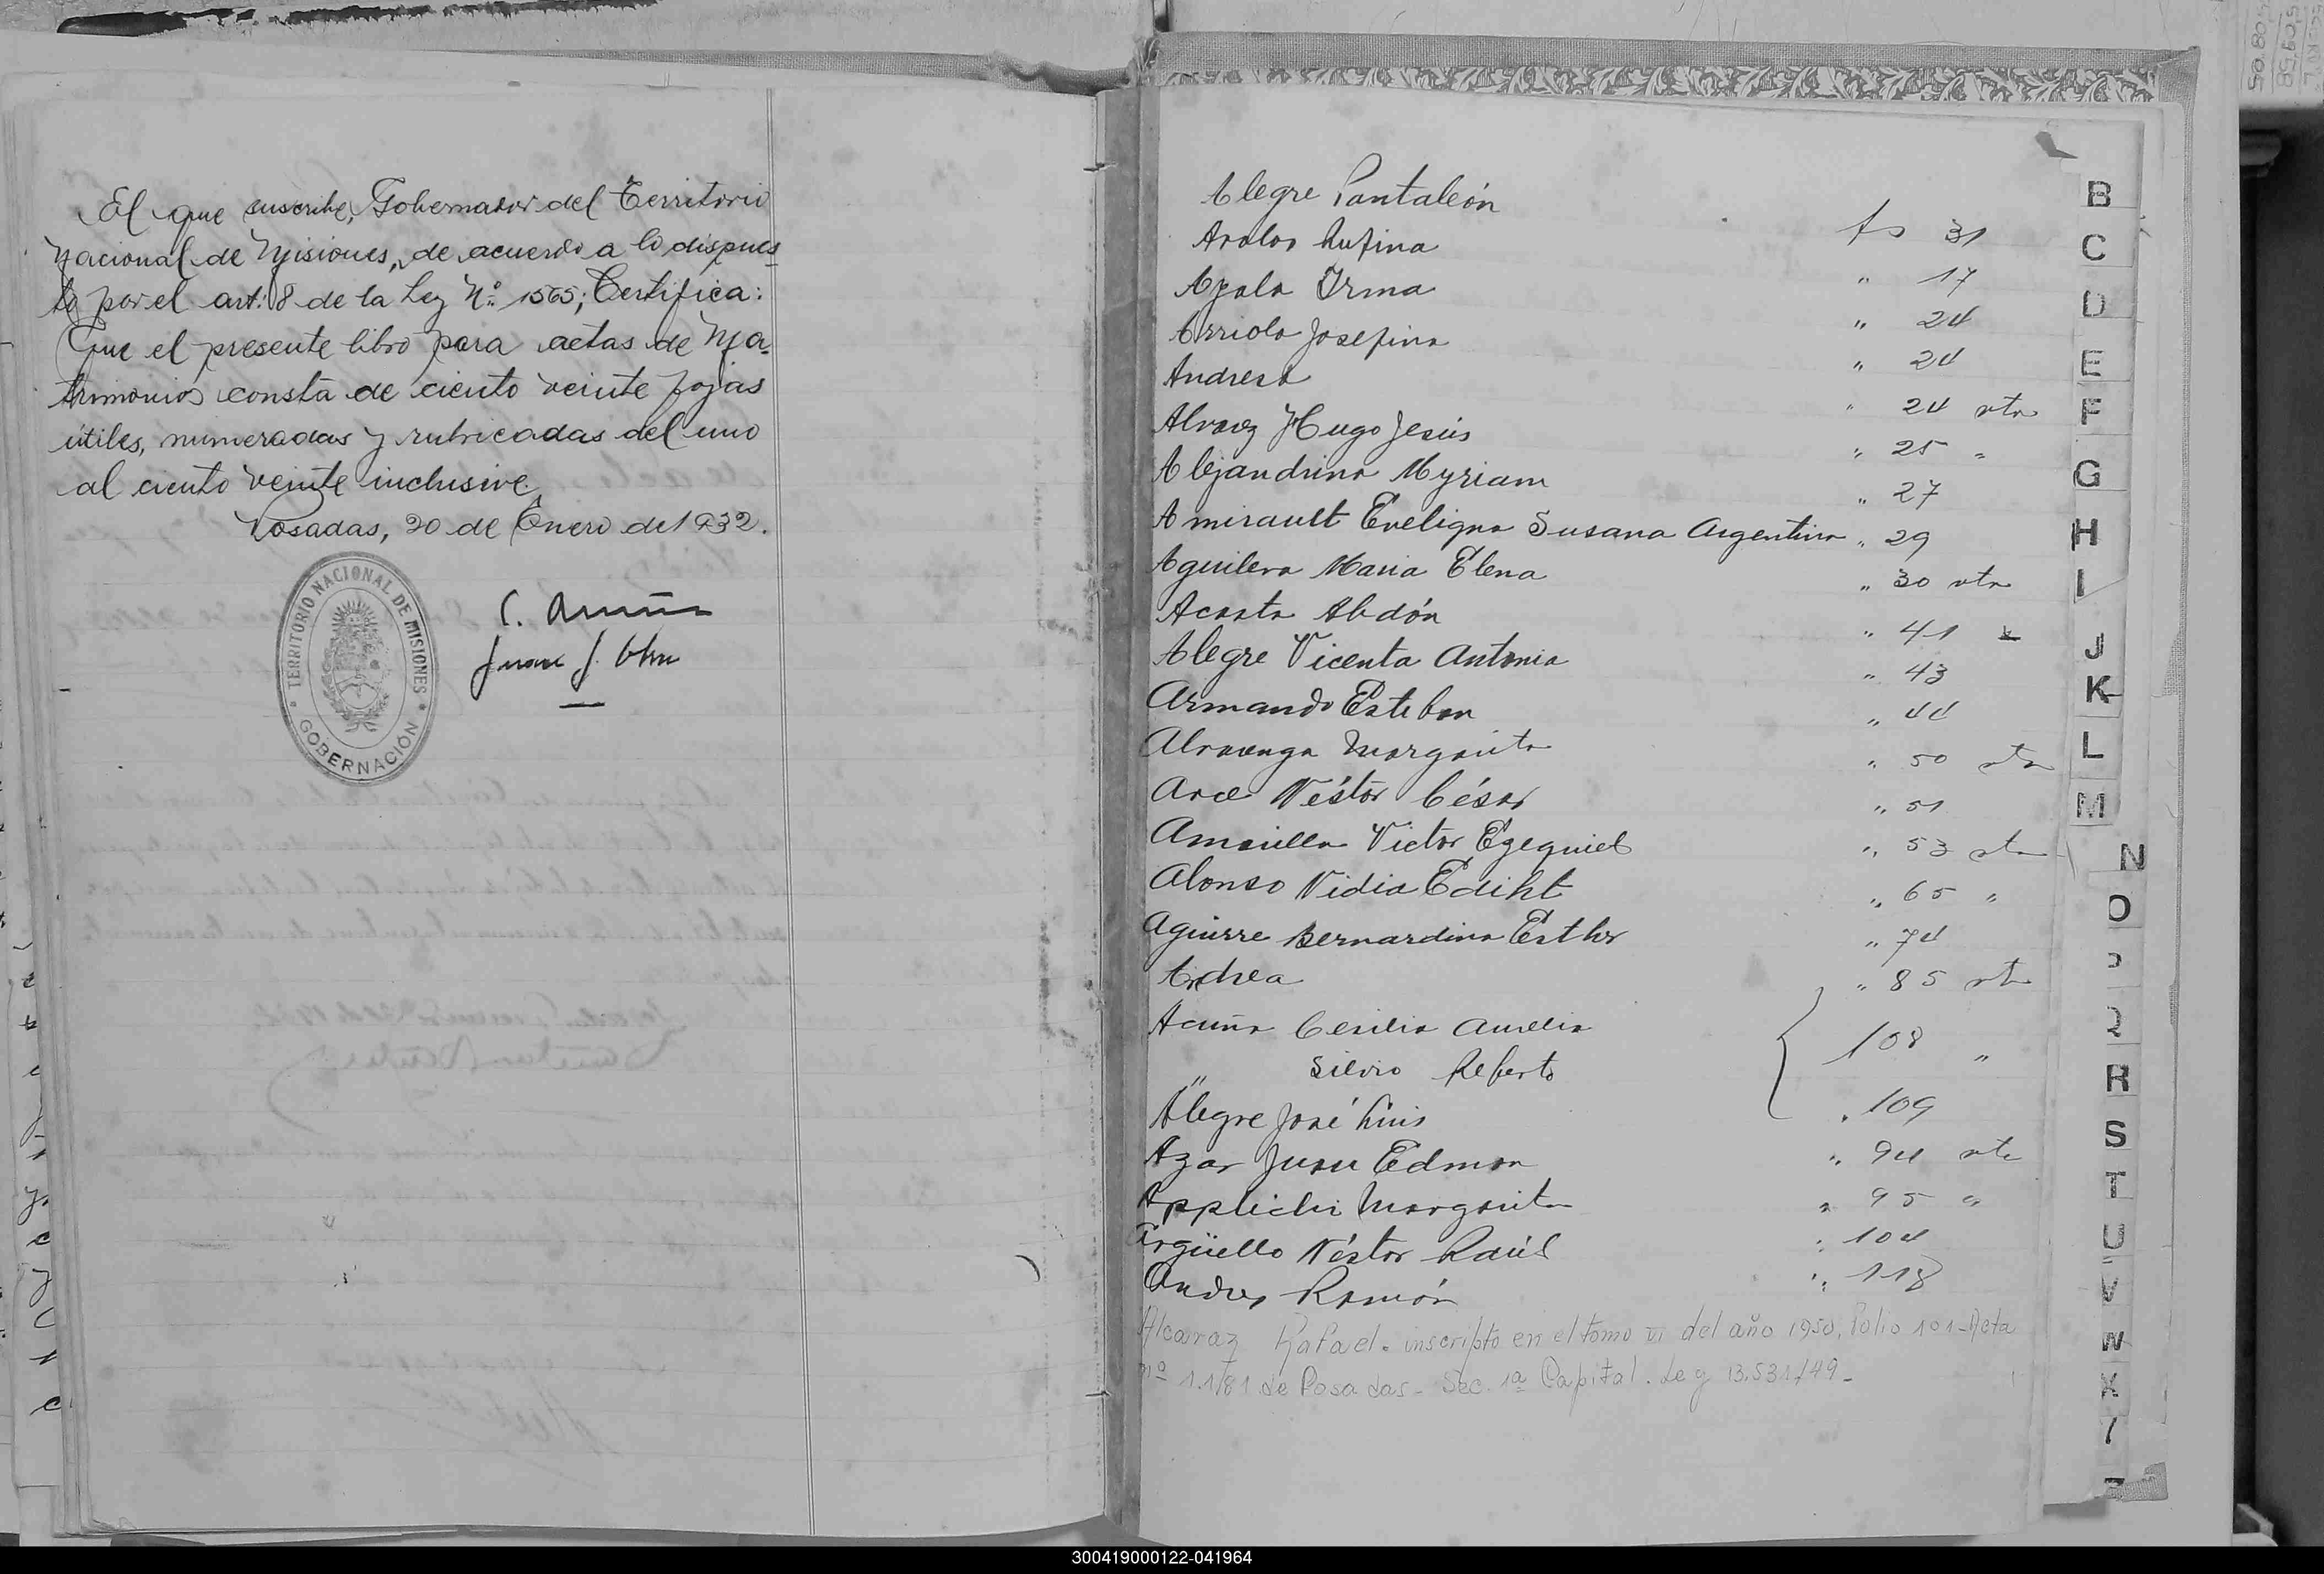 El que suscribe, Gobernador del Territorio
Nacional de Misiones, de acuerdo a lo dispues-
to por el art: 8 de la Ley Nº 1565; Certifica:
Que el presente libro para actas de Ma-
trimonios consta de ciento veinte fojas
útiles, numeradas y rubricadas del uno
al ciento veinte inclusive.
Posadas, 20 de Enero de 1932.
TERRITORIO NACIONAL DE MISIONES
GOBERNACIÓN
C. Acuña
Juan J.
Alegre Pantaleón fs 31
Avalos Rufina " 17
Ayala Irma " 24
Arriola Josefina " 24
Andresa " 24 vta
Alvarez Hugo Jesús " 25 "
Alejandrina Myriam " 27
Amirault Eveligna Susana Argentina " 29
Aguilera Maria Elena " 30 vta
Acosta Abdón " 41
Alegre Vicenta Antonia " 43
Armando Esteban " 44
Alvarenga Margarita " 50 vta
Arce Néstor César " 51
Amarilla Victor Ezequiel " 53 vta
Alonso Nidia Ediht " 65 "
Aguirre Bernardina Esther " 74
Andrea " 85 vta
Acuña Cesilia Aurelia 108 "
" Silvio Roberto
Alegre José Luis " 109
Azar Juan Edmon " 94 vta
Margarita " 95 "
Argüello Néstor Raúl " 104
Andres Ramón " 118
Alcaraz Rafael. inscripto en el tomo VI del año 1950. Folio 101-Acta
nº 1.181 de Posadas - Sec. 1ª Capital. Leg 13.531/49 -
B
C
D
E
F
G
H
I
J
K
L
M
N
O
R
S
T
U
V
W
X
300419000122-041964